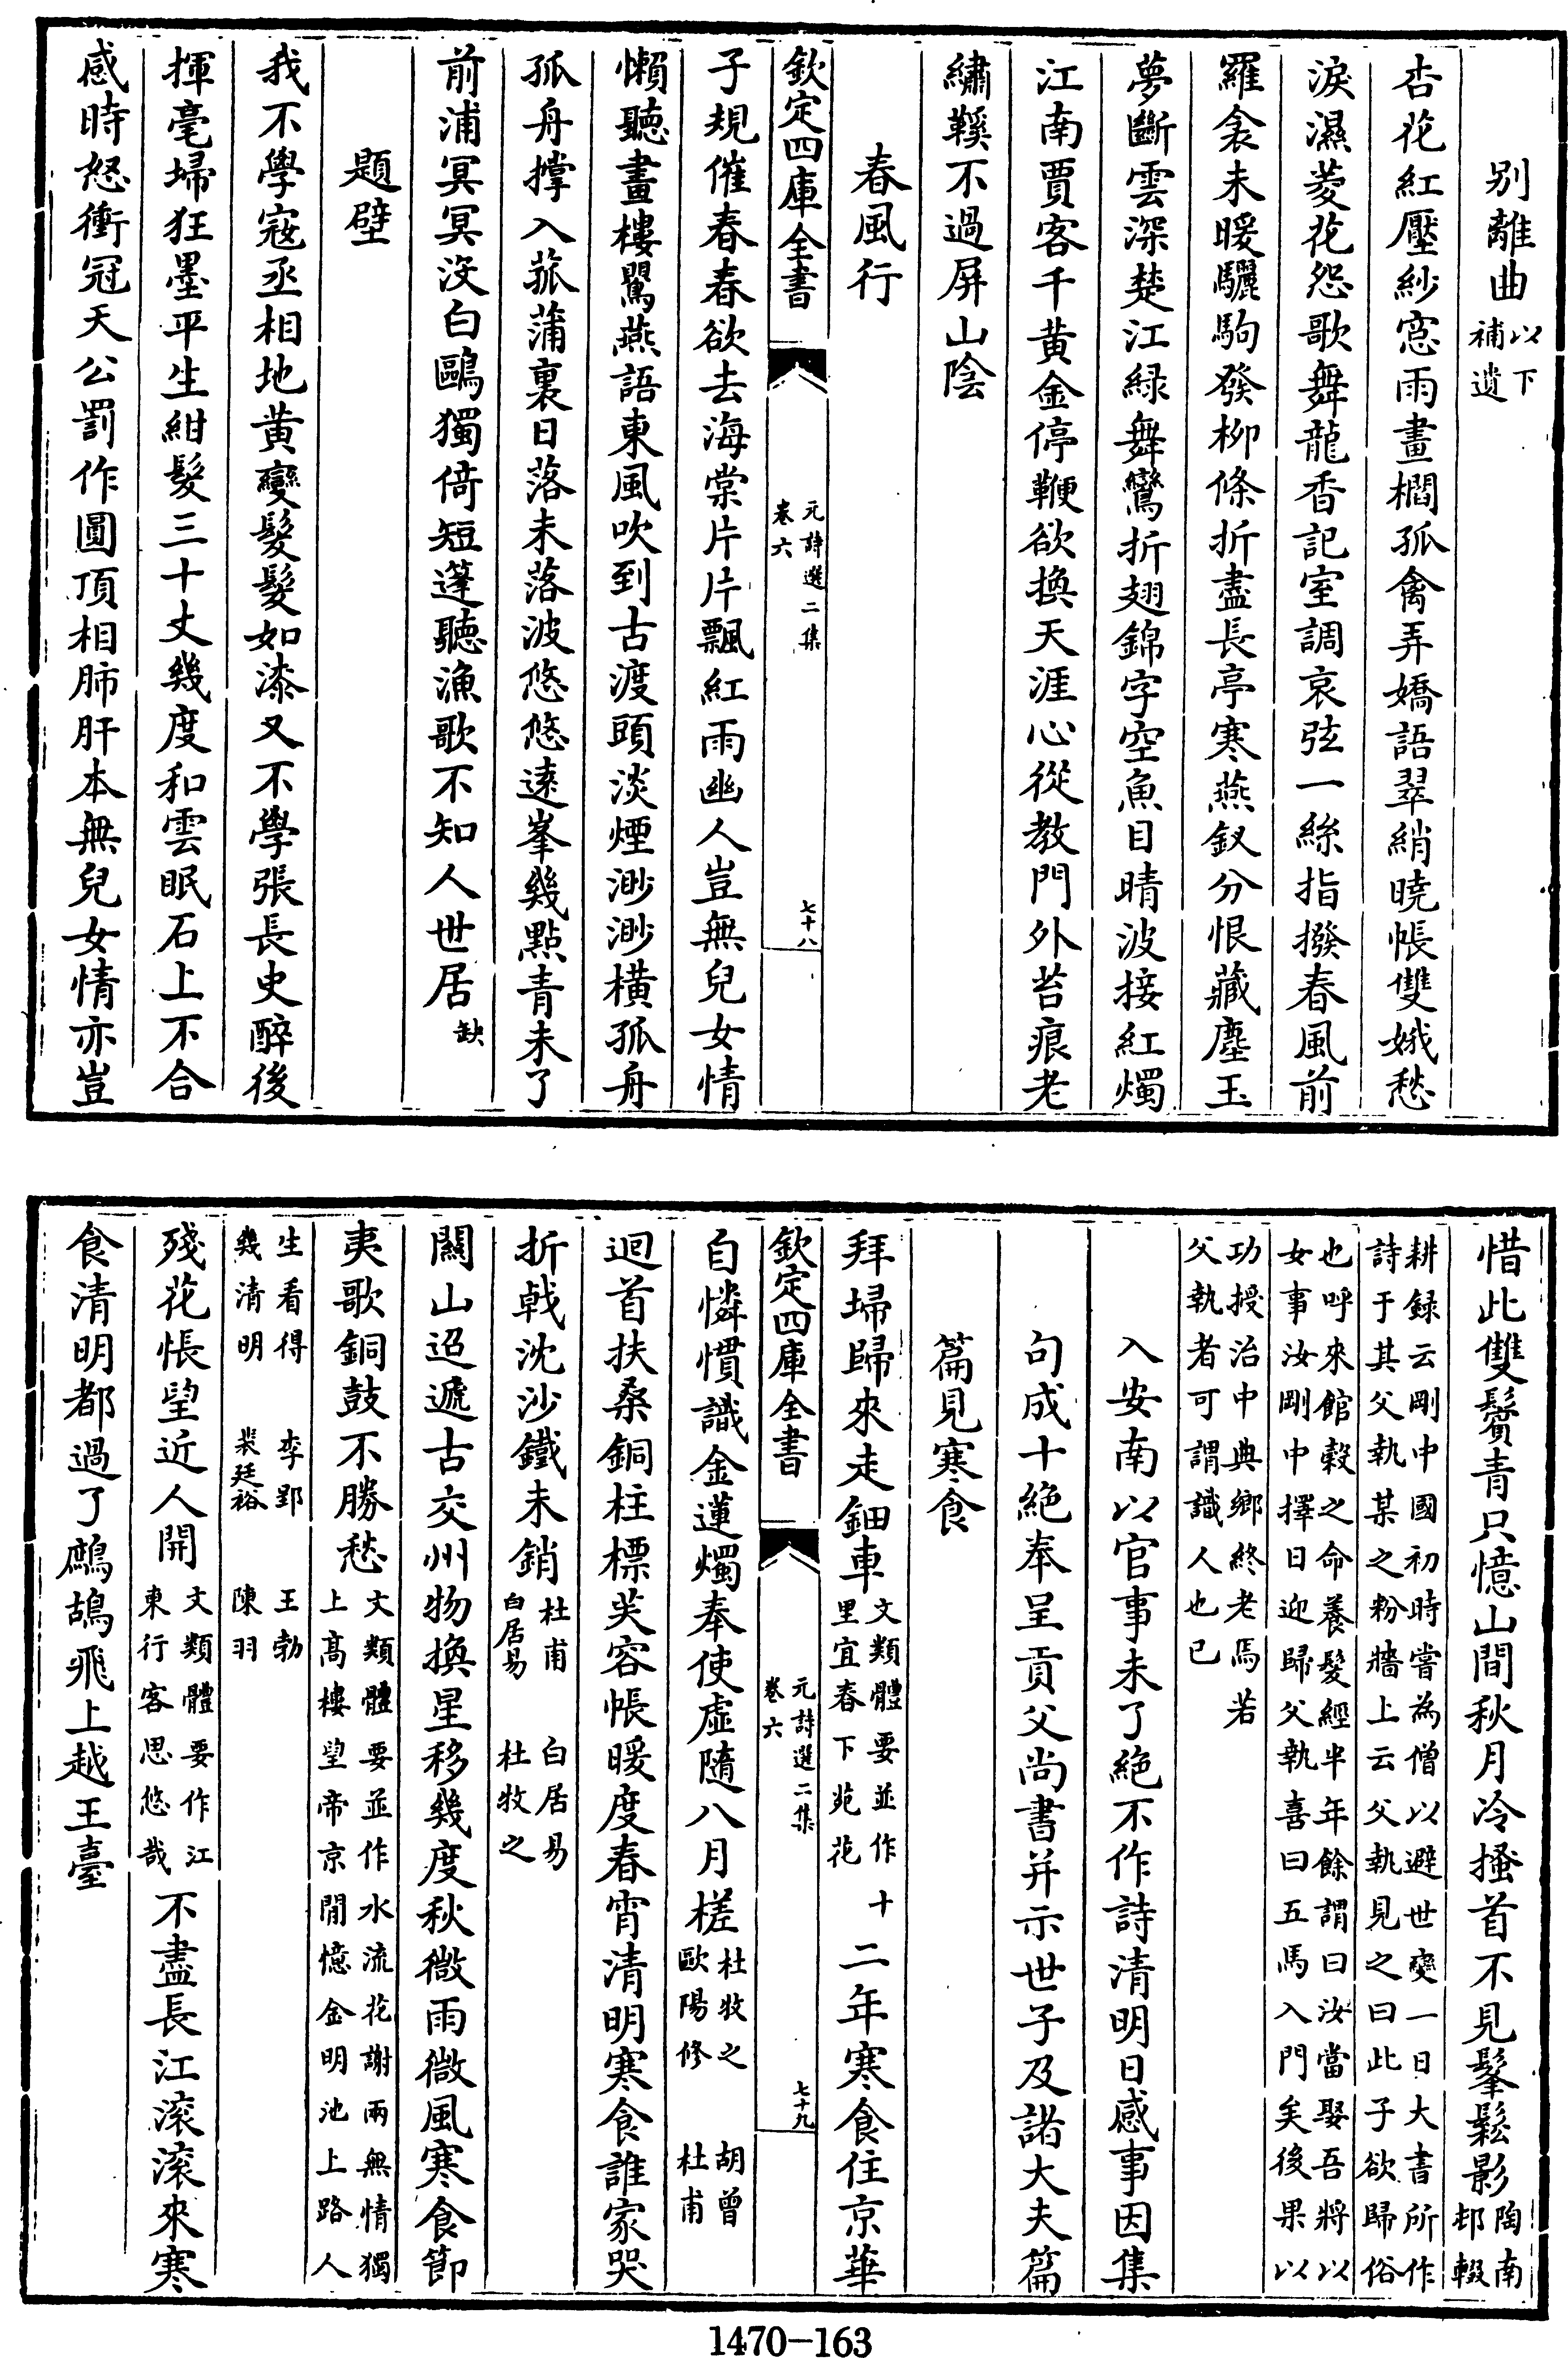 别離曲以下補遺
杏花紅壓紗窓雨畫櫩孤禽弄嬌語翠綃曉帳雙娥愁
淚濕菱花怨歌舞龍香記室調哀弦一絲指撥春風前
羅衾未暖驪駒發柳條折盡長亭寒燕釵分恨藏塵玉
夢斷雲深楚江緑舞鸞折翅錦字空魚目晴波接紅燭
江南賈客千黄金停鞭欲換天涯心從教門外苔痕老
繡鞵不過屏山陰
春風行
欽定四庫全書
元詩選二集
卷六
七十八
子規催春春欲去海棠片片飄紅雨幽人豈無兒女情
懶聽畫樓鶯燕語東風吹到古渡頭淡煙渺渺橫孤舟
孤舟撑入菰蒲裏日落未落波悠悠遠峯幾點青未了
前浦冥冥没白鷗獨倚短篷聽漁歌不知人世居缺
題壁
我不學寇丞相地黄變髮髮如漆又不學張長史醉後
揮毫埽狂墨平生紺髮三十丈幾度和雲眠石上不合
感時怒衝冠天公罰作圓頂相肺肝本無兒女情亦豈
惜此雙鬢青只憶山間秋月冷搔首不見鬖鬆影陶南邨輟
耕録云剛中國初時嘗為僧以避世變一日大書所作
詩于其父執某之粉牆上云父執見之曰此子欲歸俗
也呼來館穀之命養髮經半年餘謂曰汝當娶吾將以
女事汝剛中擇日迎歸父執喜曰五馬入門矣後果以
功授治中典鄉終老焉若
父執者可謂識人也已
入安南以官事未了絶不作詩清明日感事因集
句成十絶奉呈貢父尚書并示世子及諸大夫篇
篇見寒食
拜埽歸來走鈿車文類體要並作十里宜春下苑花 二年寒食住京華
欽定四庫全書
元詩選二集
卷六
七十九
自憐慣識金蓮燭奉使虛隨八月槎杜牧之 胡曾歐陽修 杜甫
迴首扶桑銅柱標芙容帳暖度春宵清明寒食誰家哭
折戟沈沙鐵未銷杜甫 白居易白居易 杜牧之
關山迢遞古交州物換星移幾度秋微雨微風寒食節
夷歌銅鼓不勝愁文類體要並作水流花謝兩無情獨上高樓望帝京閒憶金明池上路人
生看得幾清明 李郢 王勃裴廷裕 陳羽
殘花悵望近人開文類體要作江東行客思悠哉不盡長江滚滚來寒
食清明都過了鷓鴣飛上越王臺
1470-163